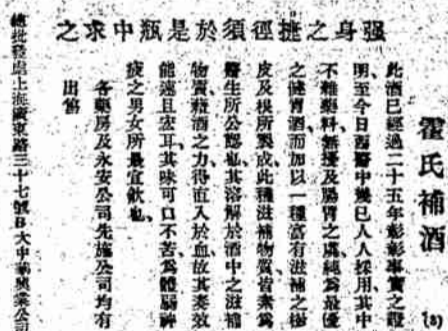 霍氏補酒
強身之捷徑須於是瓶中求之
此酒已經過二十五年彰彰事實之證
明至今日西醫中幾已人人採用其中
不雜藥料無擾及腸胃之虞純爲最優
之健胃酒而加以一種富有滋補之樹
皮及根所製成此種滋補物質皆素爲
醫生所公認也其溶解於酒中之滋補
物質藉酒之力得直入於血故其奏效
能速且宏耳其味可口不苦爲體弱神
疲之男女所最宜飲也
各藥房及永安公司先施公司均有
出售
總批發處上海廣東路三十七號B大中華興業公司